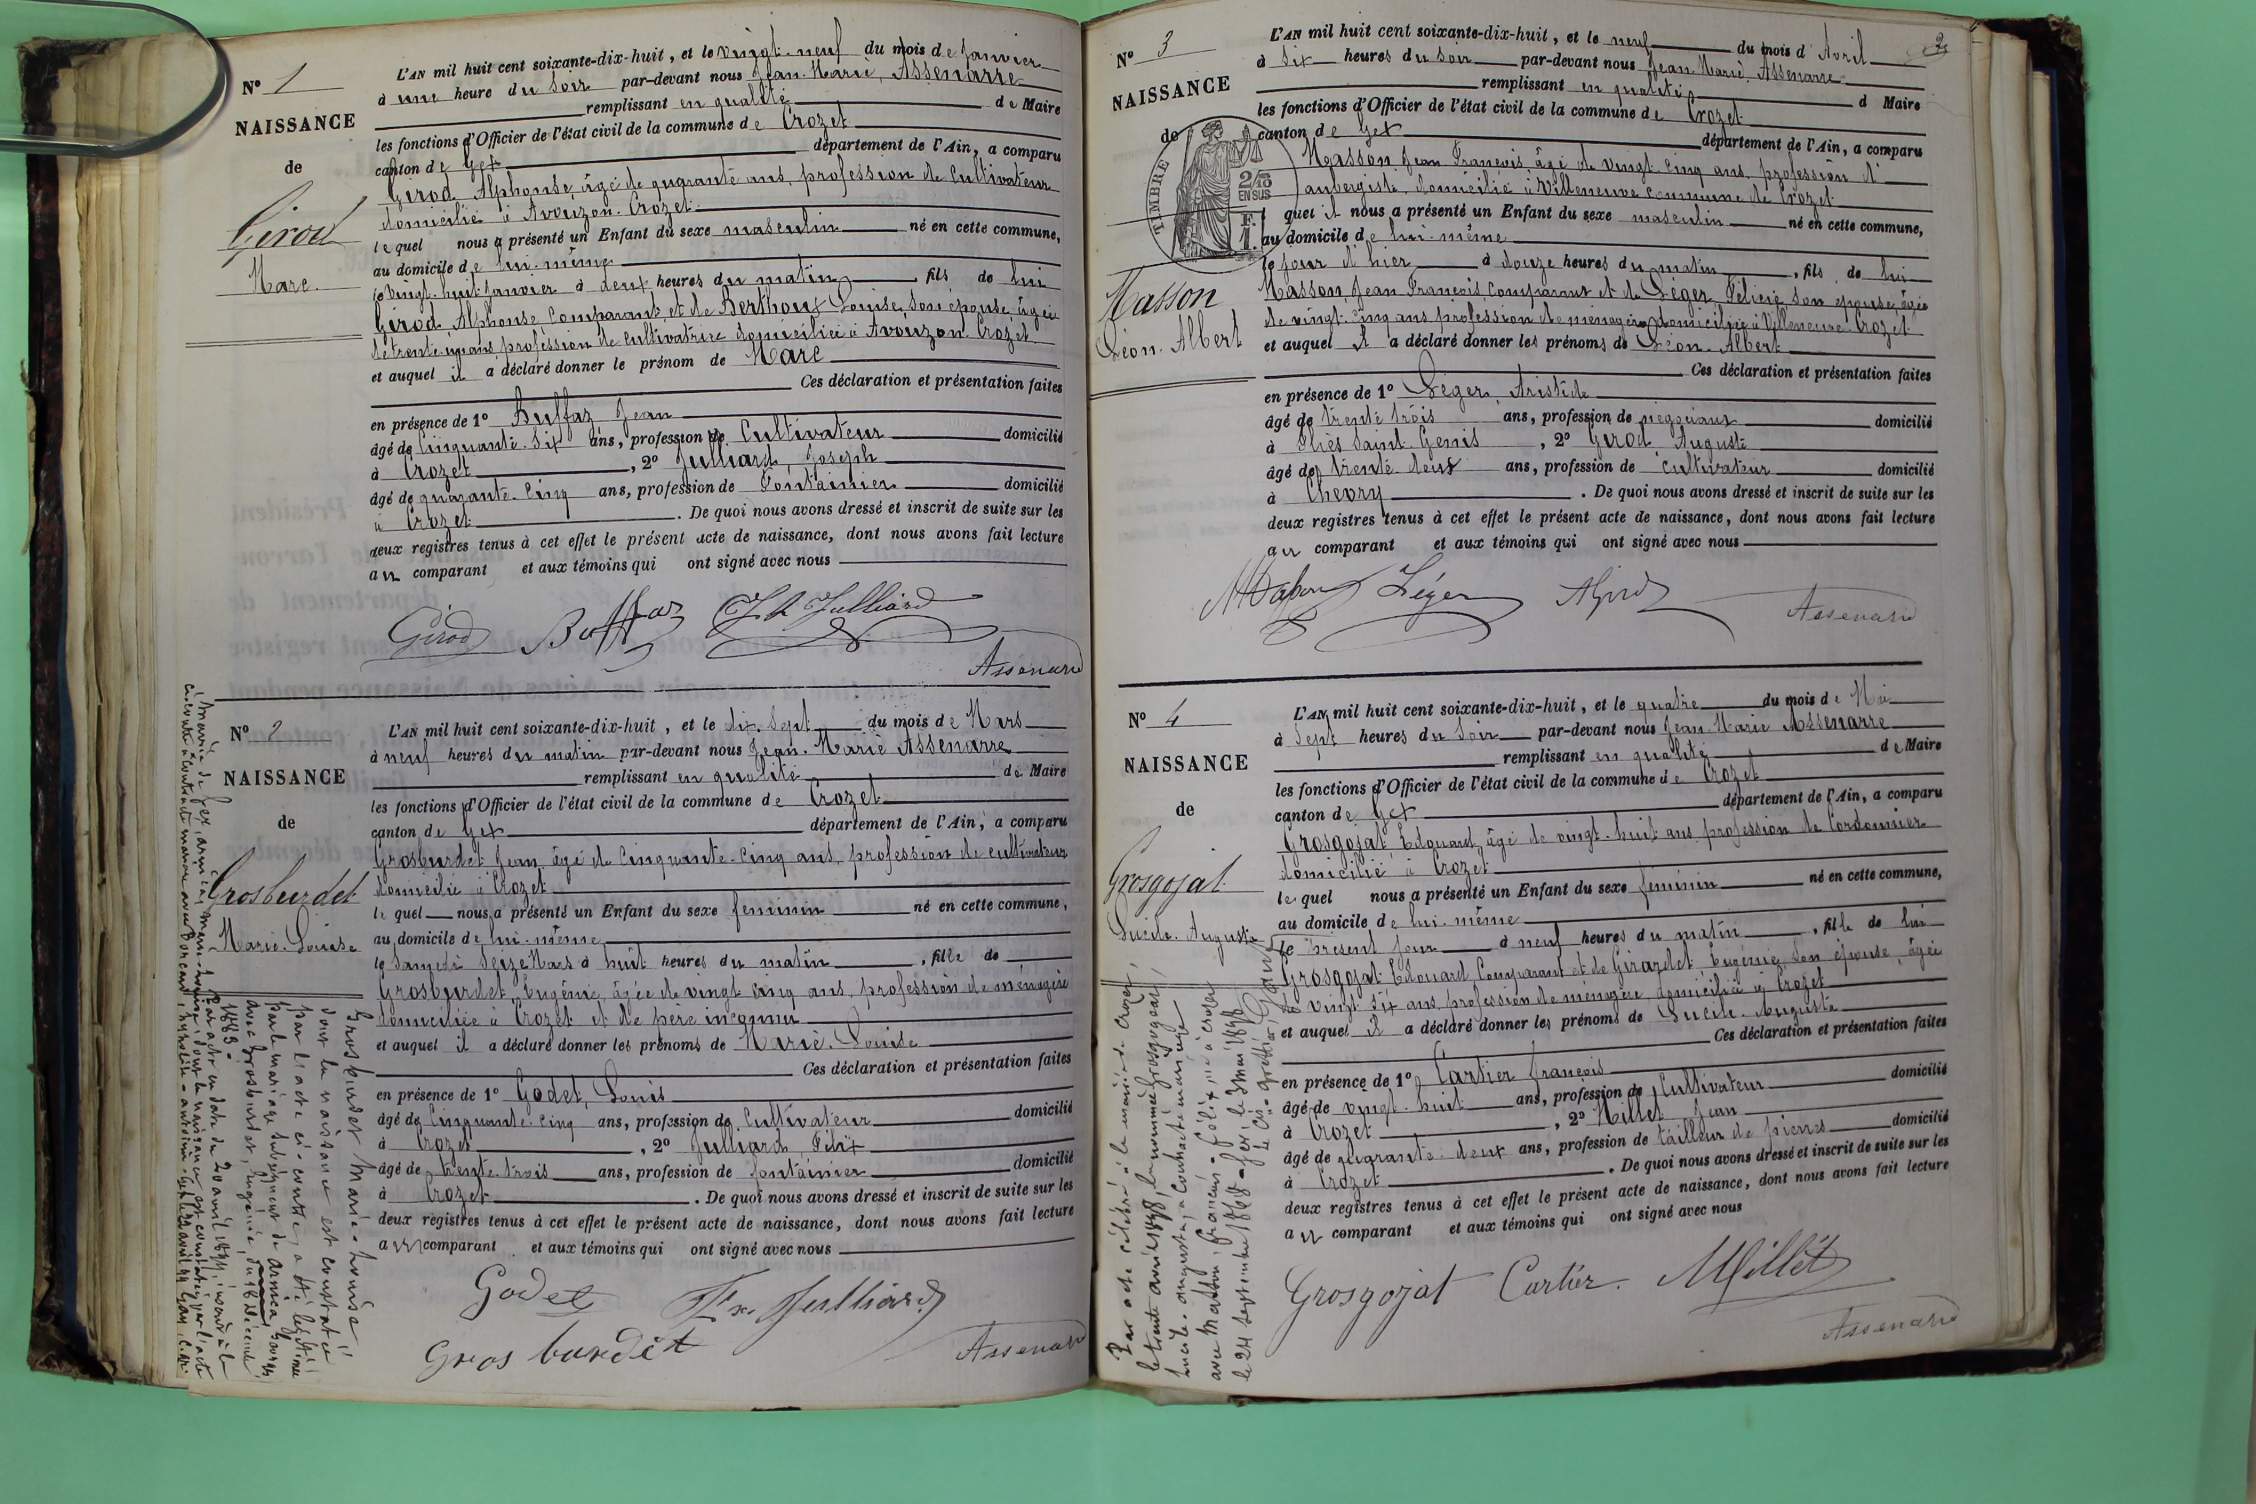 N° 1
NAISSANCE
de
Girod
Marc.
L'AN mil huit cent soixante-dix-huit, et le vingt-neuf du mois de Janvier
à une heure du soir par-devant nous Jean-Marie, Assenarre
remplissant en qualité de Maire
les fonctions d'Officier de l'état civil de la commune de Crozet
canton de Gex département de l'Ain, a comparu
Girod Alphonse, âgé de quarante ans, profession de cultivateur
domicilié à Avouzon-Crozet
lequel nous a présenté un Enfant du sexe masculin né en cette commune,
au domicile de lui-même
le vingt-huit Janvier à deux heures du matin, fils de lui
Girod, Alphonse comparant et de Berthoux Louise, son épouse, âgée
de trente ans, profession de cultivatrice domiciliée à Avouzon-Crozet
et auquel il a déclaré donner le prénom de Marc
Ces déclaration et présentation faites
en présence de 1° Buffaz Jean
âgé de Cinquante-six ans, profession de Cultivateur domicilié
à Crozet, 2° Julliard, Joseph
âgé de quarante-cinq ans, profession de Fontainier domicilié
à Crozet. De quoi nous avons dressé et inscrit de suite sur les
deux registres tenus à cet effet le présent acte de naissance, dont nous avons fait lecture
au comparant et aux témoins qui ont signé avec nous
Girod Buffaz Jh Julliard
Assenard
N° 2
NAISSANCE
de
Grosburdet
Marie-Louise
L'AN mil huit cent soixante-dix-huit, et le dix-sept du mois de Mars
à neuf heures du matin par-devant nous Jean-Marie Assenarre
remplissant en qualité de Maire
les fonctions d'Officier de l'état civil de la commune de Crozet
canton de Gex département de l'Ain, a comparu
Grosburdet Jean, âgé de Cinquante-cinq ans, profession de cultivateur
domicilié à Crozet
lequel nous a présenté un Enfant du sexe feminin né en cette commune,
au domicile de lui-même
le samedi seize Mars à huit heures du matin, fille de
Grosburdet, Eugénie, âgée de vingt cinq ans, profession de ménagère
domiciliée à Crozet et de père inconnu
et auquel il a déclaré donner les prénoms de Marie-Louise
Ces déclaration et présentation faites
en présence de 1° Godet, Louis
âgé de Cinquante-cinq ans, profession de Cultivateur domicilié
à Crozet, 2° Julliard Félix
âgé de trente-trois ans, profession de fontainier domicilié
à Crozet. De quoi nous avons dressé et inscrit de suite sur les
deux registres tenus à cet effet le présent acte de naissance, dont nous avons fait lecture
au comparant et aux témoins qui ont signé avec nous
Godet Fx Julliard
Gros burdet Assenard
Grosburdet Marie-Louise
dont la naissance est constatée
par l'acte ci-contre, a été légitimée
par le mariage subséquent de
avec Grosburdet, Eugénie, du
1883.
2
N° 3
NAISSANCE
de
TIMBRE
2/10
EN SUS
F.
1.
Masson
Léon-Albert
L'AN mil huit cent soixante-dix-huit, et le neuf du mois d'Avril
à six heures du soir par-devant nous Jean-Marie, Assenarre
remplissant en qualité d Maire
les fonctions d'Officier de l'état civil de la commune de Crozet
canton de Gex département de l'Ain, a comparu
Masson Jean François âgé de vingt cinq ans, profession d'
aubergiste, domicilié à Villeneuve commune de Crozet
lequel il nous a présenté un Enfant du sexe masculin né en cette commune,
au domicile de lui-même
le jour d'hier à douze heures du matin, fils de lui
Masson, Jean François, comparant et de Léger, Félicie, son épouse, âgée
de vingt-cinq ans, profession de ménagère domiciliée à Villeneuve-Crozet
et auquel il a déclaré donner les prénoms de Léon-Albert
Ces déclaration et présentation faites
en présence de 1° Léger, Aristide
âgé de trente trois ans, profession de négociant domicilié
à Saint-Genis, 2° Girod Auguste
âgé de trente-deux ans, profession de cultivateur domicilié
à Chevry. De quoi nous avons dressé et inscrit de suite sur les
deux registres tenus à cet effet le présent acte de naissance, dont nous avons fait lecture
au comparant et aux témoins qui ont signé avec nous
Masson Léger AGirod Assenard
N° 4
NAISSANCE
de
Grosgojat
Lucile-Augusta
L'AN mil huit cent soixante-dix-huit, et le quatre du mois de Mai
à sept heures du soir par-devant nous Jean-Marie Assenarre
remplissant en qualité de Maire
les fonctions d'Officier de l'état civil de la commune de Crozet
canton de Gex département de l'Ain, a comparu
Grosgojat Edouard, âgé de vingt-huit ans, profession de Cordonnier
domicilié à Crozet
lequel nous a présenté un Enfant du sexe feminin né en cette commune,
au domicile de lui-même
le présent jour à neuf heures du matin, fille de lui
Grosgojat Edouard, comparant et de Girardet, Eugénie, son épouse, âgée
de vingt six ans, profession de ménagère, domiciliée à Crozet
et auquel il a déclaré donner les prénoms de Lucile-Augusta
Ces déclaration et présentation faites
en présence de 1° Cartier François
âgé de vingt-huit ans, profession de Cultivateur domicilié
à Crozet, 2° Millet Jean
âgé de quarante-deux ans, profession de tailleur de pierres domicilié
à Crozet. De quoi nous avons dressé et inscrit de suite sur les
deux registres tenus à cet effet le présent acte de naissance, dont nous avons fait lecture
au comparant et aux témoins qui ont signé avec nous
Grosgojat Cartier. Millet
Assenard
Par acte célébré à la mairie de Crozet,
le trente avril 1898, la nommée Grosgojat,
Lucile-Augusta, a contracté mariage
avec Masson, François-Félix, né à Crozet
le 24 septembre 1868 - Gex, le 3 mai 1898